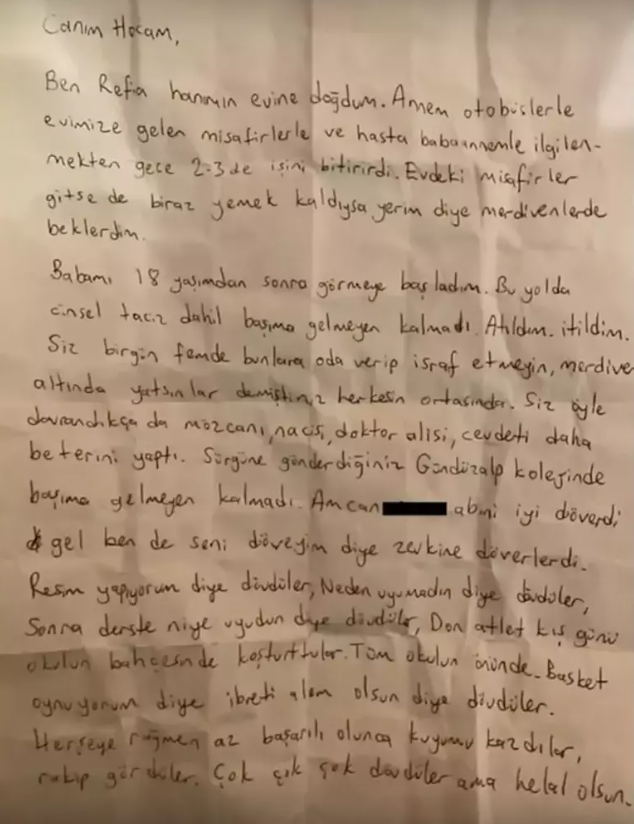 Canım Hocam,
Ben Refia hanımın evine doğdum. Annem otobüslerle
evimize gelen misafirlerle ve hasta babaannemle ilgilen-
mekten gece 2-3 de işini bitirirdi. Evdeki misafirler
gitse de biraz yemek kaldıysa yerim diye merdivenlerde
beklerdim.
Babamı 18 yaşımdan sonra görmeye başladım. Bu yolda
cinsel taciz dahil başıma gelmeyen kalmadı. Atıldım. itildim.
Siz birgün femde bunlara oda verip israf etmeyin, merdive
altında yatsınlar demiştiniz herkesin ortasında. Siz öyle
davrandıkça da mozcanı, nacisi, doktor alisi, cevdeti daha
beterini yaptı. Sürgüne gönderdiğiniz Gündüzalp kolejinde
başıma gelmeyen kalmadı. Amcan abini iyi döverdi
gel ben de seni döveyim diye zevkine döverlerdi.
Resim yapıyorum diye dövdüler, Neden uyumadın diye dövdüler,
Sonra derste niye uyudun diye dövdüler, Don atlet kış günü
okulun bahçesinde koşturttular. Tüm okulun önünde. Basket
oynuyorum diye ibreti alem olsun diye dövdüler.
Herşeye rağmen az başarılı olunca kuyumu kazdılar,
rakip gördüler. Çok çok çok dövdüler ama helal olsun.